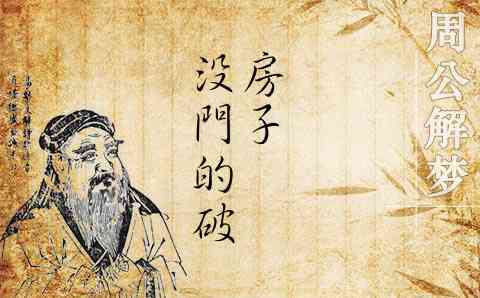 周公解梦
房子
没門的破